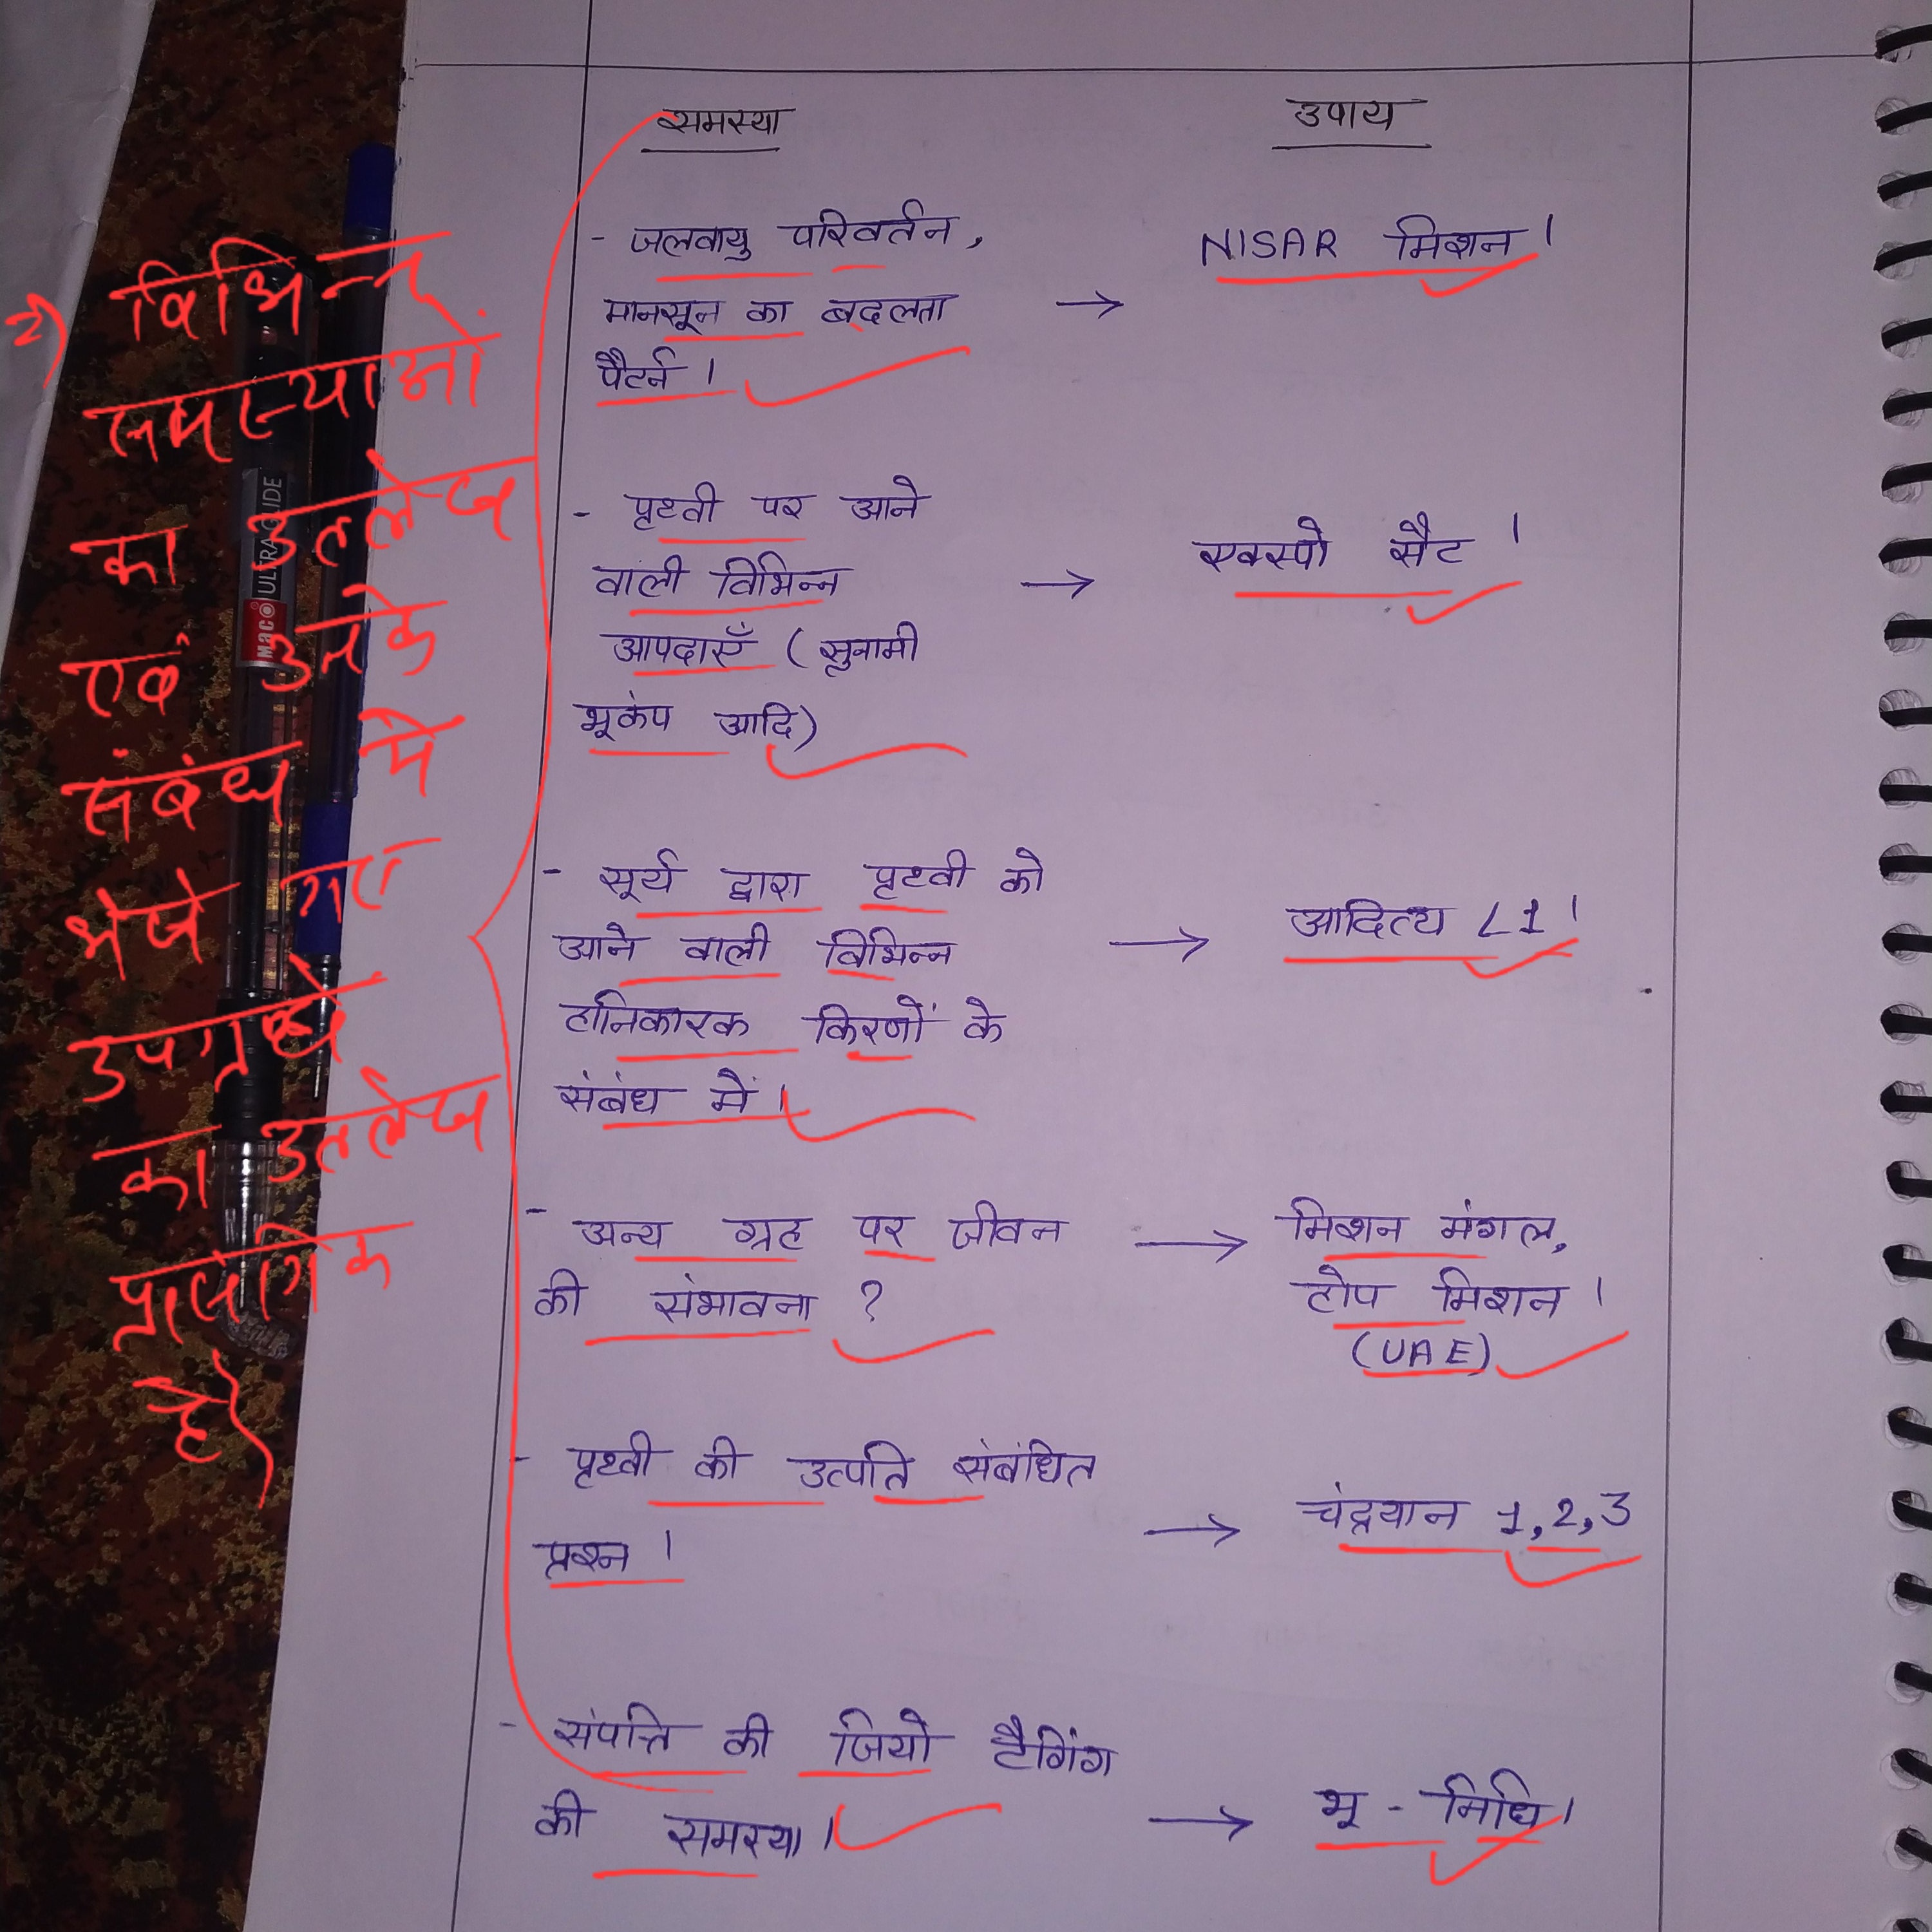 समस्या उपाय
- जलवायु परिवर्तन,
मानसून का बदलता → NISAR मिशन।
पैटर्न।
- पृथ्वी पर आने
वाली विभिन्न → एक्स्पो सैट।
आपदाएँ (सुनामी
भूकंप आदि)
- सूर्य द्वारा पृथ्वी को
आने वाली विभिन्न → आदित्य L1।
हानिकारक किरणों के
संबंध में।
- अन्य ग्रह पर जीवन → मिशन मंगल,
की संभावना? होप मिशन।
(UAE)
- पृथ्वी की उत्पति संबंधित
प्रश्न। → चंद्रयान 1,2,3
- संपत्ति की जियो टैगिंग
की समस्या। → भू-निधि।
2) विभिन्न
समस्याओं
का उल्लेख
एवं उनके
संबंध में
भेजे गए
उपग्रहों
का उल्लेख
प्रासंगिक
है।
MACO ULTRAGLIDE